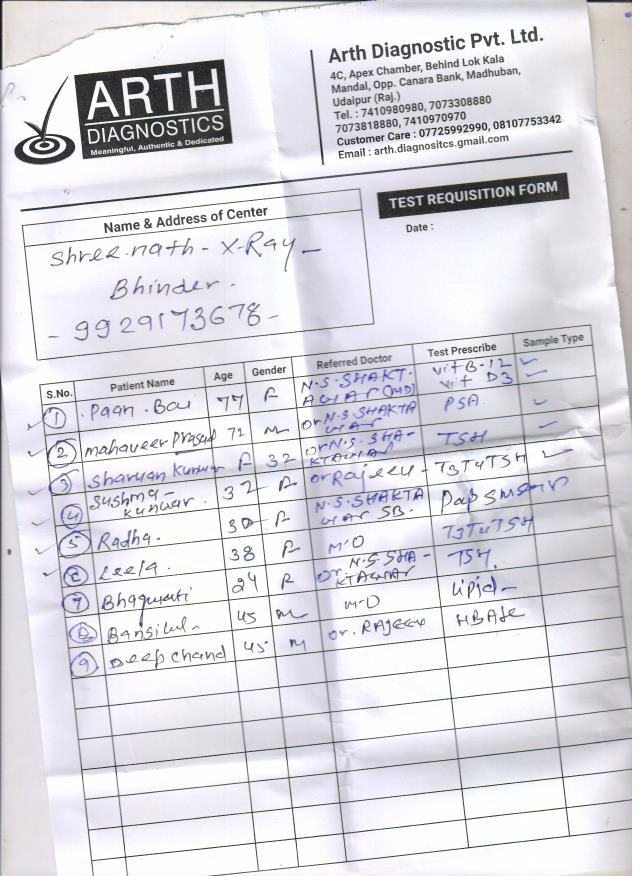 ARTH
DIAGNOSTICS
Meaningful, Authentic & Dedicated
Arth Diagnostic Pvt. Ltd.
4C, Apex Chamber, Behind Lok Kala
Mandal, Opp. Canara Bank, Madhuban,
Udaipur (Raj.)
Tel. : 7410980980, 7073308880
7073818880, 7410970970
Customer Care : 07725992990, 08107753342
Email : arth.diagnositcs.gmail.com
TEST REQUISITION FORM
Date :
Name & Address of Center
Shree.nath - X-Ray -
Bhinder -
- 9929173678 -
S.No. Patient Name Age Gender Referred Doctor Test Prescribe Sample Type
1 Paan Bai 77 F N.S.SHAKTAWAR (MD) vit B-12 vit D3
2 mahaveer Prasad 72 M Dr N.S.SHAKTAWAR PSA
3 Sharwan Kunwar F 32 Dr N.S.SHAKTAWAR TSH
4 Sushma - Kunwar. 32 F Dr Rajeev - T3T4TSH
5 Radha. 30 F N.S.SHAKTAWAR SB. Pap smear
6 Leela. 38 F M.O T3T4TSH
7 Bhagwati 24 F Dr. N.S.SHAKTAWAR TSH.
8 Bansilal - 45 M M.O Lipid -
9 Deep chand 45 M Dr. RAJEEV HBA1c